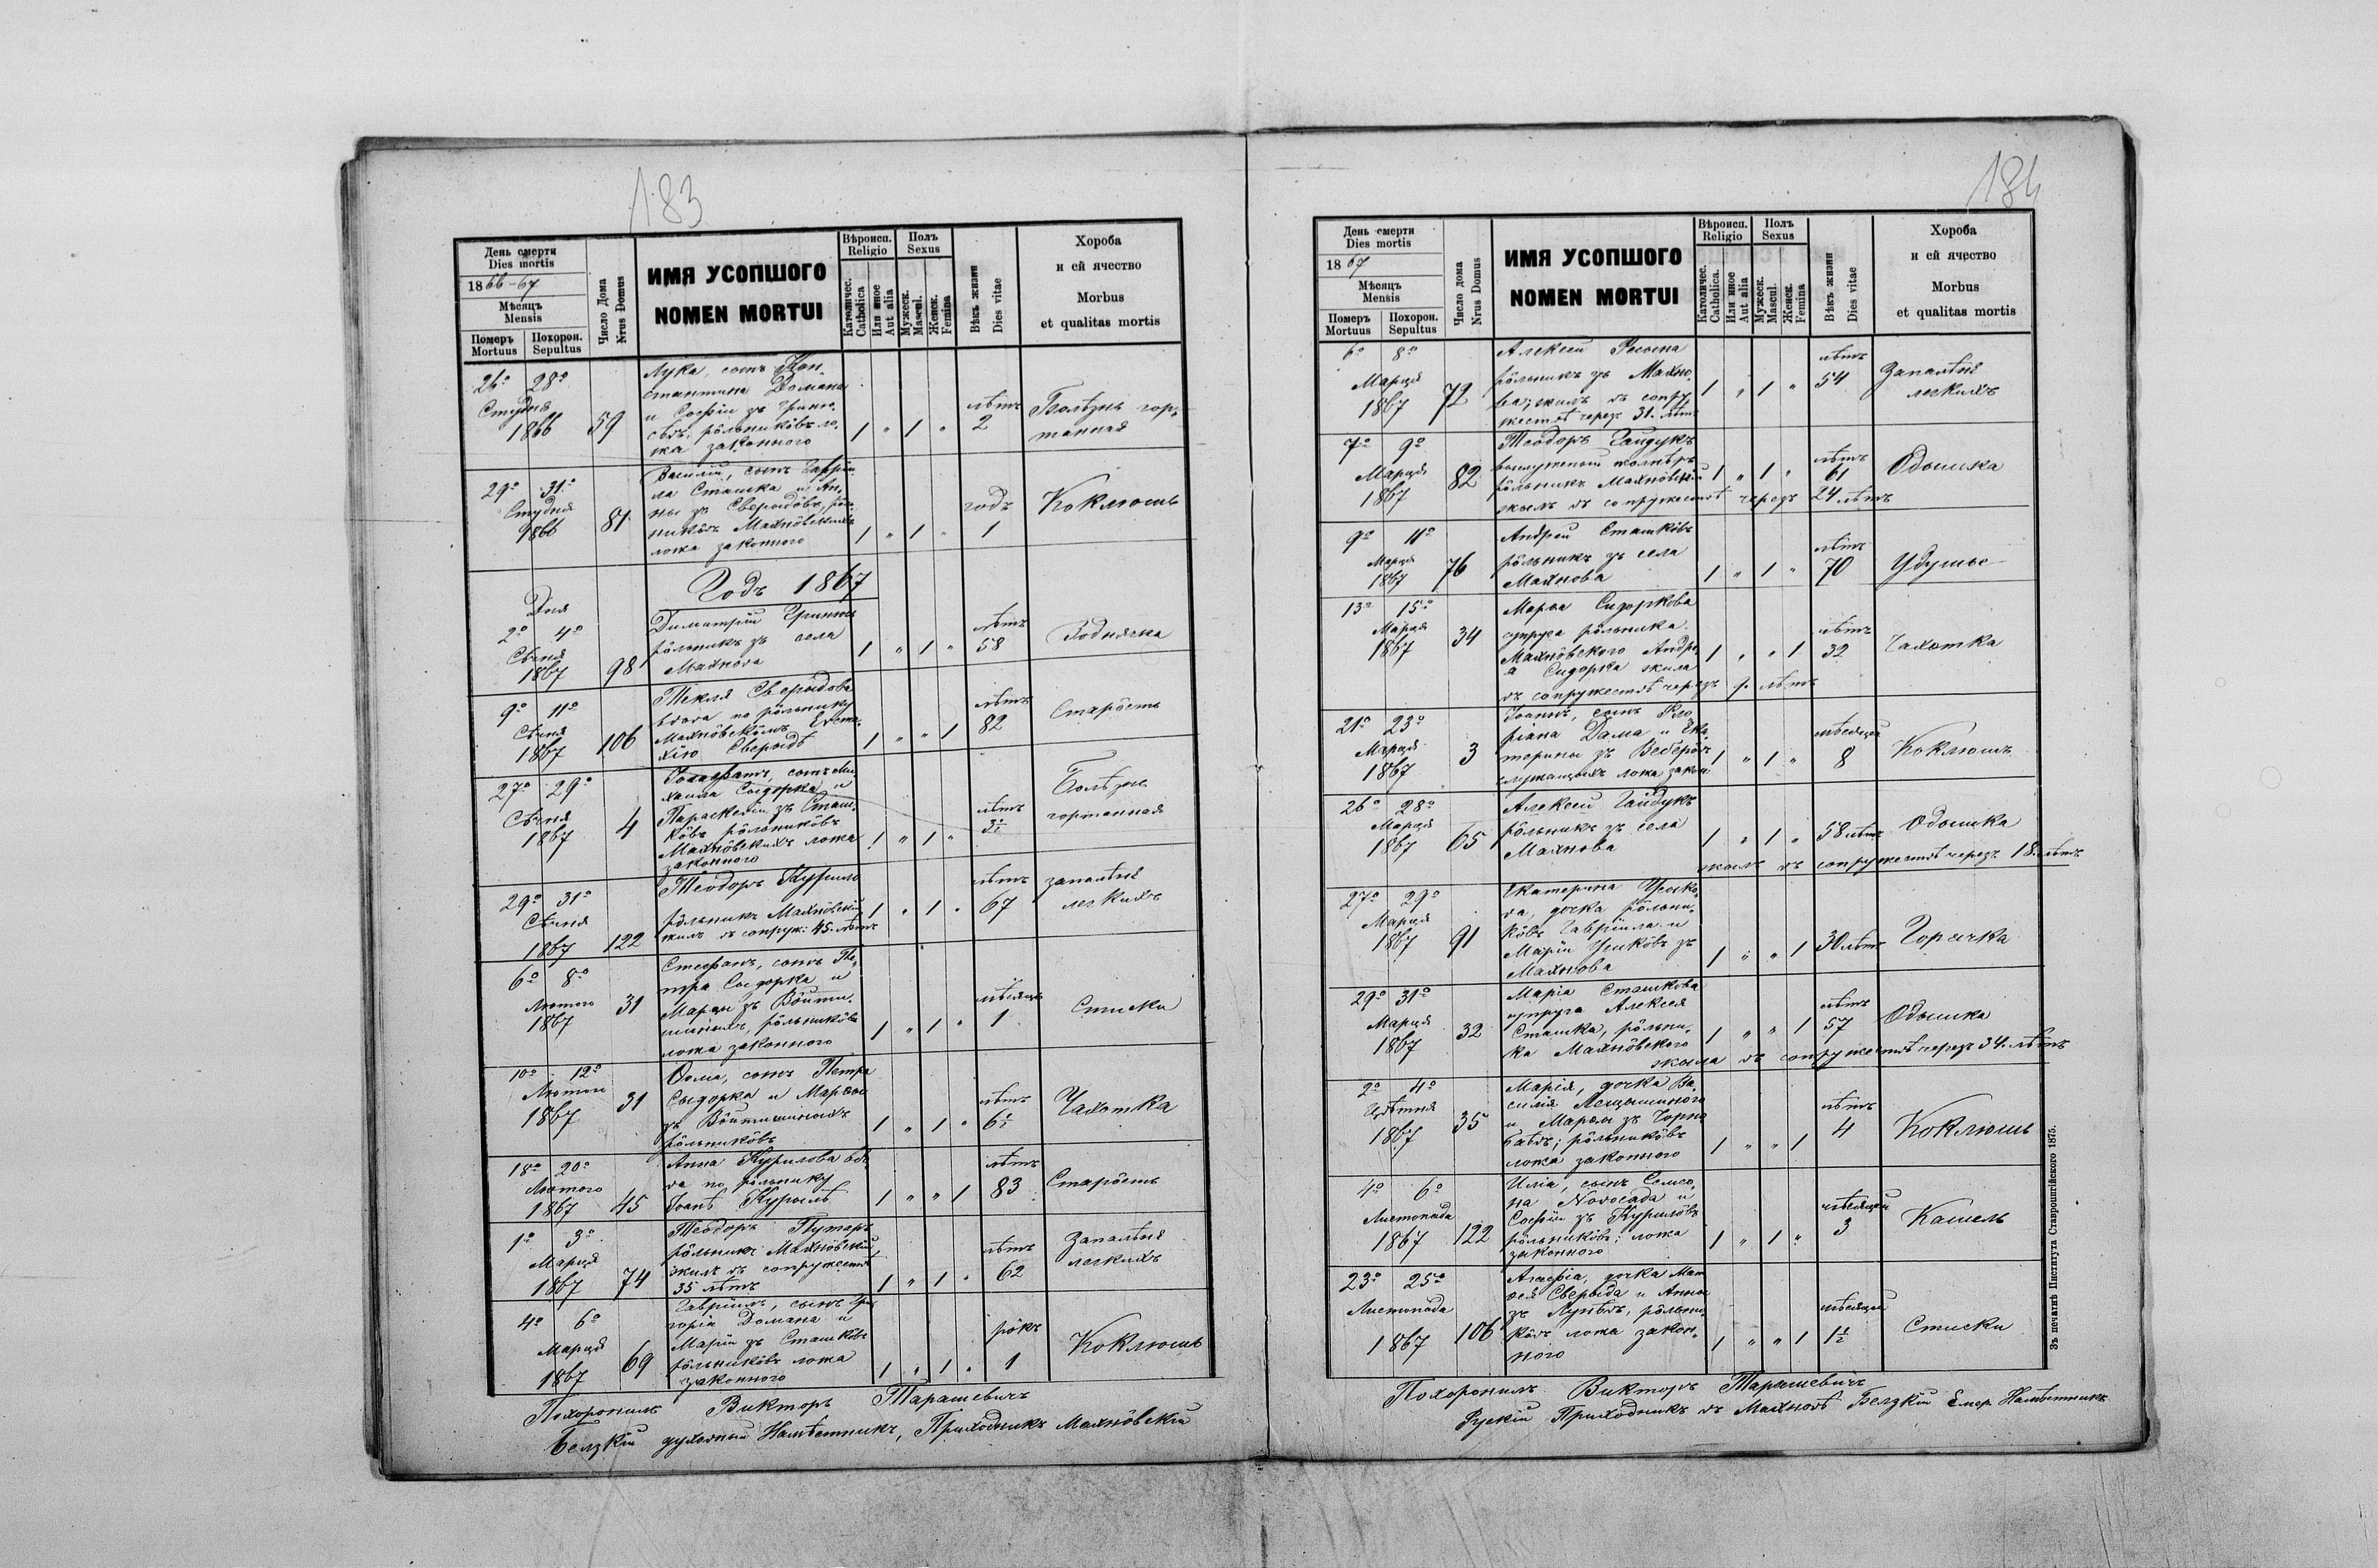 183
День смерти
Dies mortis
1866-67
Мѣсяцъ
Mensis
Померъ
Mortuus
Похорон.
Sepultus
Число Дома
Nrus Domus
ИМЯ УСОПШОГО
NOMEN MORTUI
Вѣроисп.
Religio
Католичес.
Catholica
Или иное
Aut alia
Полъ
Sexus
Мужеск.
Mascul.
Женск.
Femina
Вѣкъ жизни
Dies vitae
Хороба
и ей ячество
Morbus
et qualitas mortis
26º 28º
Студня
1866 59
Лука, сынъ Кон-
стантина Домана
и Софіи зъ
рôльникôвъ ло-
жа законного
1 " 1 "
лѣтъ
2
Болѣзнь гор-
танная
29º 31º
Студня
1866 81
Василій, сынъ Гаврiи-
ла Сташка и Ан-
ны зъ Сверыдôвъ, рôль-
никôвъ Махнôвскихъ
ложа законного
1 " 1 "
годъ
1
Коклюшь
Годъ 1867
Дня
2º 4º
Сѣчня
1867 98
Димитрій Гринюс
рôльникъ зъ села
Махнова
1 " 1 "
лѣтъ
58
Воднячка
9º 11º
Сѣчня
1867 106
Текля Сверыдова
вдова по рôльнику
Махнôвскôмъ
Сверыдѣ
1 " " 1
лѣтъ
82
Старôсть
27º 29º
Сѣчня
1867 4
Іосафатъ, сынъ Ми-
хаила Сыдорка и
Параскевіи зъ Сташ-
кôвъ рôльникôвъ
Махнôвскихъ ложа
законного
1 " 1 "
лѣтъ
Болѣзнь
гортанная
29º 31º
Сѣчня
1867 122
Теодоръ Курило
рôльникъ Махнôвскій
жилъ въ сопруж: 45. лѣтъ
1 " 1 "
лѣтъ
67
запалѣнiе
легкихъ
6º 8º
Лютого
1867 31
Стефанъ, сынъ Пе-
тра Сыдорка и
Марѳы зъ Вôйти-
шиныхъ, рôльникôвъ
ложа законного
1 " 1 "
мѣсяцъ
1
Стиски
10º 12º
Лютого
1867 31
Ѳома, сынъ Петра
Сыдорка и Марѳы
зъ Вôйтишиныхъ
рôльникôвъ
1 " 1 "
лѣтъ
6½
Чахотка
18º 20º
Лютого
1867 45
Анна Курилова вдо-
ва по рôльнику
Іоанѣ Курылѣ
1 " " 1
лѣтъ
83
Старôсть
1º 3º
Марця
1867 74
Теодоръ
рôльникъ Махнôвскій,
жилъ въ сопружествѣ
35 лѣтъ
1 " 1 "
лѣтъ
62
Запалѣнiе
легкихъ
4º 6º
Марця
1867 69
Гавріилъ, сынъ Гри-
горія Домана и
Маріи зъ Сташкôвъ
рôльникôвъ ложа
законного
1 " 1 "
рôкъ
1
Коклюшь
Похоронилъ Викторъ Тарашевичъ
Белзкій духовный Намѣстникъ, Приходникъ Махнôвскій
184
День смерти
Dies mortis
1867
Мѣсяцъ
Mensis
Померъ
Mortuus
Похорон.
Sepultus
Число дома
Nrus Domus
ИМЯ УСОПШОГО
NOMEN MORTUI
Вѣроисп.
Religio
Католичес.
Catholica.
Или иное
Aut alia
Полъ
Sexus
Мужеск.
Mascul.
Женск.
Femina
Вѣкъ жизни
Dies vitae
Хороба
и ей ячество
Morbus
et qualitas mortis
6º 8º
Марця
1867 72
Алексій
рôльникъ зъ Махно-
ва, жилъ въ сопру-
жествѣ через 31. лѣтъ
1 " 1 "
лѣтъ
54
Запалѣнiе
легкихъ
7º 9º
Марця
1867 82
Теодоръ Гайдукъ
выслуженый жолнѣръ
рôльникъ Махнôвскій
жилъ въ сопружествѣ черезъ 24 лѣтъ
1 " 1 "
лѣтъ
61
Одышка
9º 11º
Марця
1867 76
Андрей Сташкôвъ
рôльникъ зъ села
Махнова
1 " 1 "
лѣтъ
70
Удушье
13º 15º
Марця
1867 34
Марѳа Сидоркова
супруга рôльника
Махнôвского Андре-
я Сидорка жила
въ сопружествѣ черезъ 9. лѣтъ
1 " " 1
лѣтъ
32
Чахотка
21º 23º
Марця
1867 3
Іоаннъ, сынъ Фло-
ріана Дама и Ека-
терины зъ Веберôвъ
служащыхъ ложа закон:
1 " 1 "
мѣсяцей
8
Коклюшъ
26º 28º
Марця
1867 65
Алексій Гайдукъ
рôльникъ зъ села
Махнова
жилъ въ сопружествѣ черезъ 18. лѣтъ
1 " 1 "
58 лѣтъ
Одышка
27º 29º
Марця
1867 91
Екатерина Уныко-
ва, дочка рôльни-
кôвъ Гавріила и
Маріи Уныкôвъ зъ
Махнова
1 " " 1
30 лѣтъ
Горячка
29º 31º
Марця
1867 32
Марія Сташкова
супруга Алексія
Сташка, рôльни-
ка Махнôвского
жыла въ сопружествѣ черезъ 34. лѣтъ
1 " " 1
лѣтъ
57
Одышка
2º 4º
Цвѣтня
1867 35
Марія, дочка Ва-
силія Лещышиного
и Марѳы зъ Чорно-
бабъ; рôльникôвъ
ложа законного
1 " " 1
лѣтъ
4
Коклюшь
4º 6º
Листопада
1867 122
Илія, сынъ Семео-
на Новосада и
Софіи зъ Курилôвъ
рôльникôвъ; ложа
законного
1 " 1 "
мѣсяцей
3
Кашель
23º 25º
Листопада
1867 106
Агафія, дочка Мат-
ѳея Сверыда и Анны
зъ рôльни-
кôвъ ложа закон-
ного
1 " " 1
мѣсяцей
1½
Стиски
Похоронилъ Викторъ Тарашевичъ
Рускій Приходникъ въ Махновѣ Белзкій Емер. Намѣстникъ
Зъ печатнѣ Института Ставропигійского 1875.